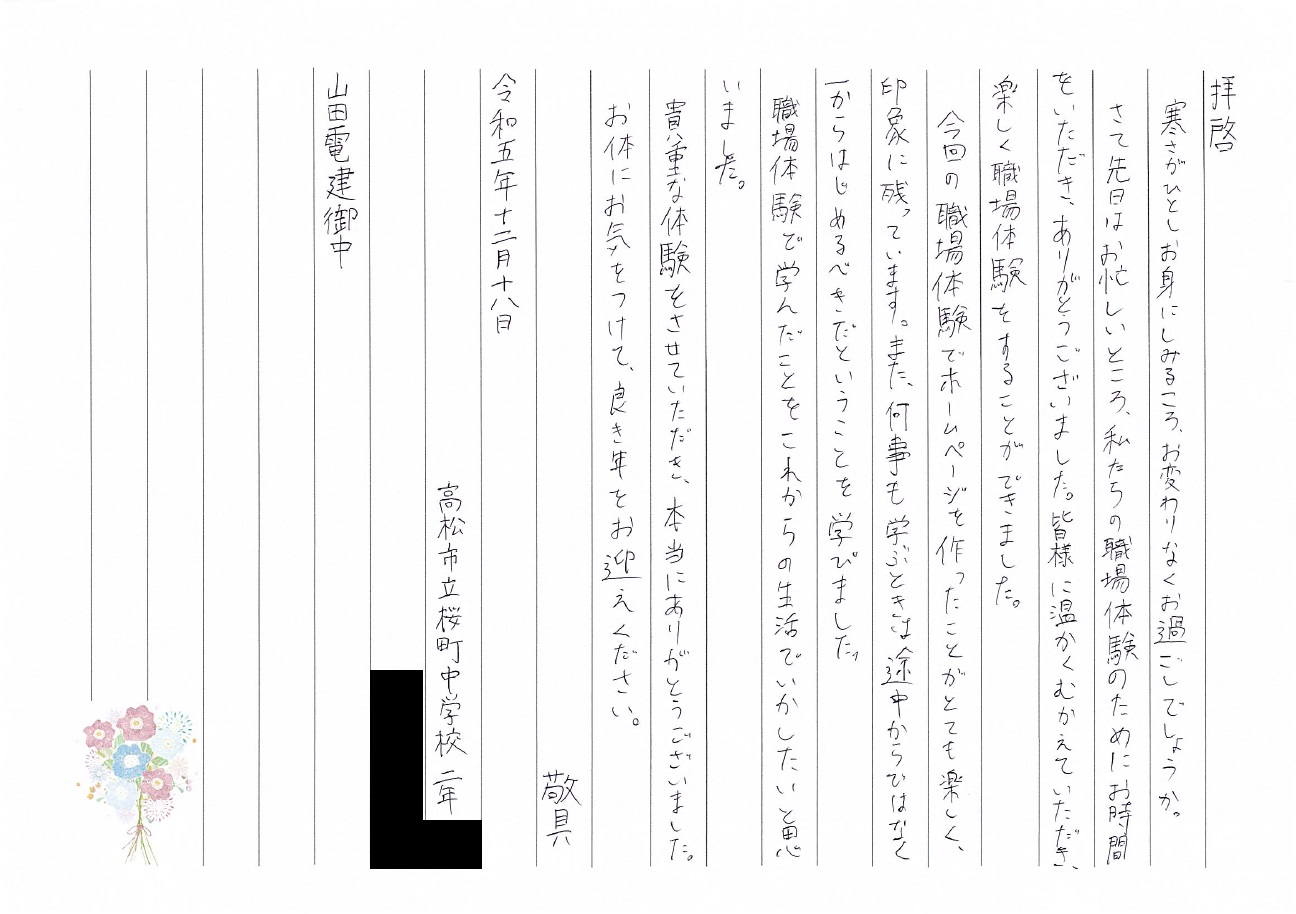 拝啓
寒さがひとしお身にしみるころ、お変わりなくお過ごしでしょうか。
さて先日はお忙しいところ、私たちの職場体験のためにお時間
をいただき、ありがとうございました。皆様に温かくむかえていただき、
楽しく職場体験をすることができました。
今回の職場体験でホームページを作ったことがとても楽しく、
印象に残っています。また、何事も学ぶときは途中からではなく
一からはじめるべきだということを学びました。
職場体験で学んだことをこれからの生活でいかしたいと思
いました。
貴重な体験をさせていただき、本当にありがとうございました。
お体にお気をつけて、良き年をお迎えください。
敬具
令和五年十二月十八日
高松市立桜町中学校 二年
山田電建御中